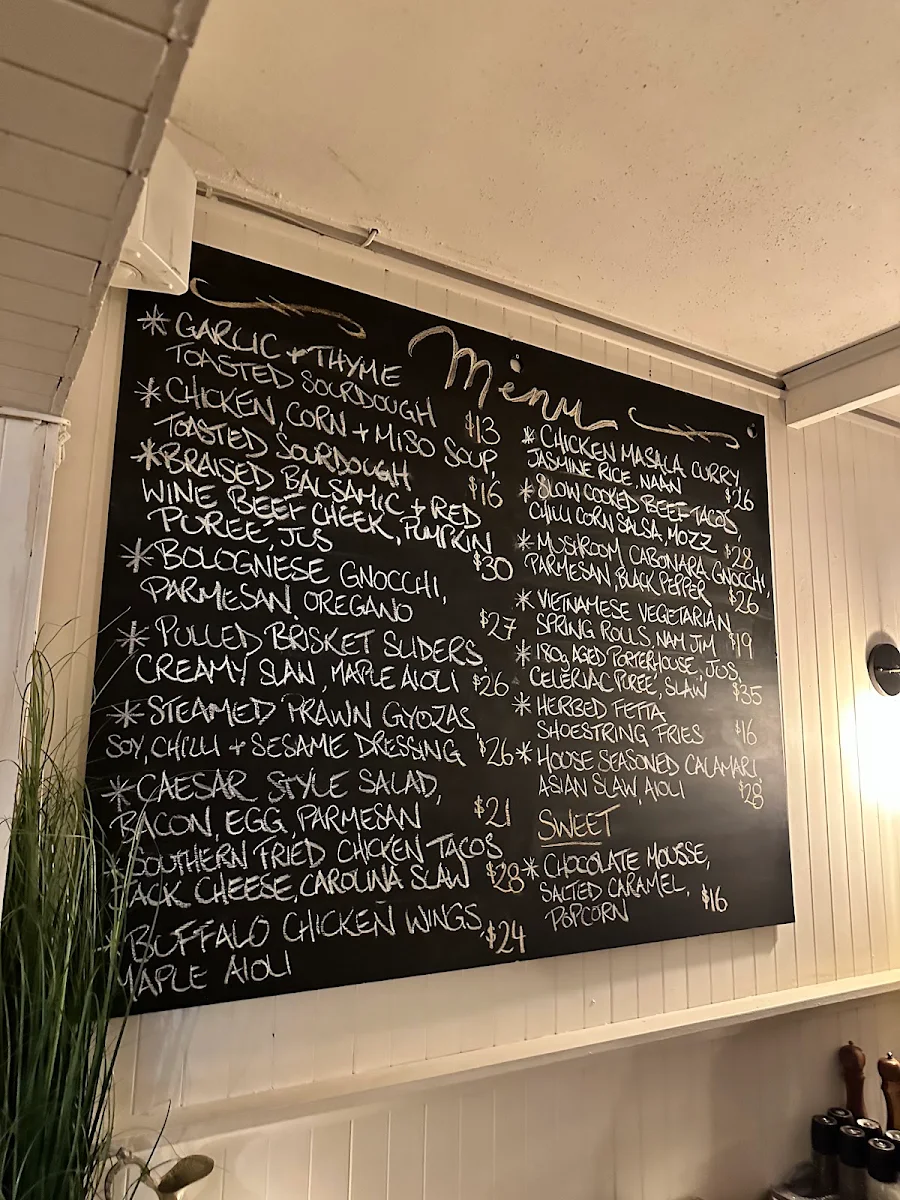 Menu
* GARLIC + THYME
TOASTED SOURDOUGH $13
* CHICKEN, CORN + MISO SOUP,
TOASTED SOURDOUGH $16
* BRAISED BALSAMIC + RED
WINE BEEF CHEEK, PUMPKIN
PUREE, JUS $30
* BOLOGNESE GNOCCHI,
PARMESAN, OREGANO $27
* PULLED BRISKET SLIDERS,
CREAMY SLAW, MAPLE AIOLI $26
* STEAMED PRAWN GYOZAS
SOY, CHILLI + SESAME DRESSING $26
* CAESAR STYLE SALAD,
BACON, EGG, PARMESAN $21
* SOUTHERN FRIED CHICKEN TACOS
JACK CHEESE, CAROLINA SLAW $28
* BUFFALO CHICKEN WINGS, $24
MAPLE AIOLI
* CHICKEN MASALA CURRY,
JASMINE RICE, NAAN $26
* SLOW COOKED BEEF TACOS
CHILLI CORN SALSA, MOZZ $28
* MUSHROOM CABONARA GNOCCHI,
PARMESAN, BLACK PEPPER $26
* VIETNAMESE VEGETARIAN
SPRING ROLLS, NAM JIM $19
* 180g AGED PORTERHOUSE, JUS,
CELERIAC PUREE, SLAW $35
* HERBED FETTA
SHOESTRING FRIES $16
* HOUSE SEASONED CALAMARI,
ASIAN SLAW, AIOLI $28
SWEET
* CHOCOLATE MOUSSE,
SALTED CARAMEL,
POPCORN $16